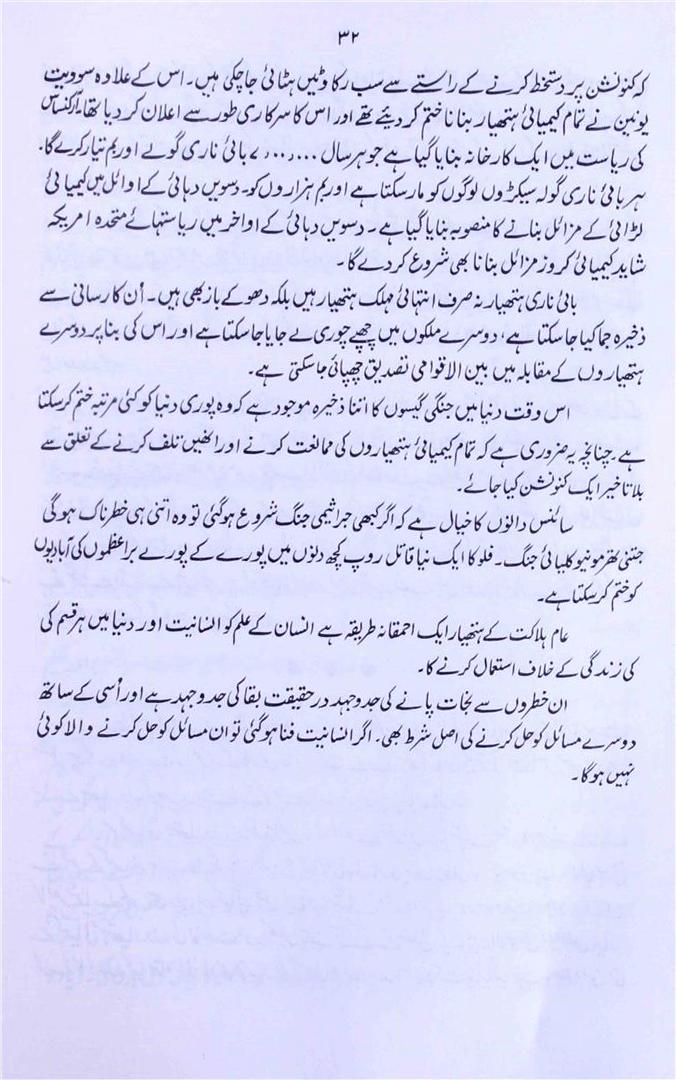 ۳۲
کہ کنونشن پر دستخط کرنے کے راستے سے سب رکاوٹیں ہٹائی جاچکی ہیں۔ اس کے علاوہ سوویت
یونین نے تمام کیمیائی ہتھیار بنانا ختم کر دیئے تھے اور اس کا سرکاری طور سے اعلان کر دیا تھا۔ آرکنساس
کی ریاست میں ایک کارخانہ بنایا گیا ہے جو ہر سال ۷۰۰،۰۰۰ بائی ناری گولے اور بم تیار کرے گا۔
ہر بائی ناری گولہ سیکڑوں لوگوں کو مار سکتا ہے اور بم ہزاروں کو۔ دسویں دہائی کے اوائل میں کیمیائی
لڑائی کے مزائل بنانے کا منصوبہ بنایا گیا ہے۔ دسویں دہائی کے اواخر میں ریاستہائے متحدہ امریکہ
شاید کیمیائی کروز مزائل بنانا بھی شروع کر دے گا۔
بائی ناری ہتھیار نہ صرف انتہائی مہلک ہتھیار ہیں بلکہ دھوکے باز بھی ہیں۔ اُن کا رسانی سے
ذخیرہ جما کیا جا سکتا ہے، دوسرے ملکوں میں چھپے چوری لے جایا جا سکتا ہے اور اس کی بنا پر دوسرے
ہتھیاروں کے مقابلہ میں بین الاقوامی تصدیق چھپائی جا سکتی ہے۔
اس وقت دنیا میں جنگی گیسوں کا اتنا ذخیرہ موجود ہے کہ وہ پوری دنیا کو کئی مرتبہ ختم کر سکتا
ہے۔ چنانچہ یہ ضروری ہے کہ تمام کیمیائی ہتھیاروں کی ممانعت کرنے اور انھیں تلف کرنے کے تعلق سے
بلا تاخیر ایک کنونشن کیا جائے۔
سائنس دانوں کا خیال ہے کہ اگر کبھی جراثیمی جنگ شروع ہوگئی تو وہ اتنی ہی خطرناک ہوگی
جتنی تھرمونیوکلیائی جنگ۔ فلو کا ایک نیا قاتل روپ کچھ دنوں میں پورے کے پورے براعظموں کی آبادیوں
کو ختم کر سکتا ہے۔
عام ہلاکت کے ہتھیار ایک احمقانہ طریقہ ہے انسان کے علم کو انسانیت اور دنیا میں ہر قسم کی
کی زندگی کے خلاف استعمال کرنے کا۔
ان خطروں سے نجات پانے کی جدوجہد در حقیقت بقا کی جدوجہد ہے اور اُسی کے ساتھ
دوسرے مسائل کو حل کرنے کی اصل شرط بھی۔ اگر انسانیت فنا ہوگئی تو ان مسائل کو حل کرنے والا کوئی
نہیں ہوگا۔